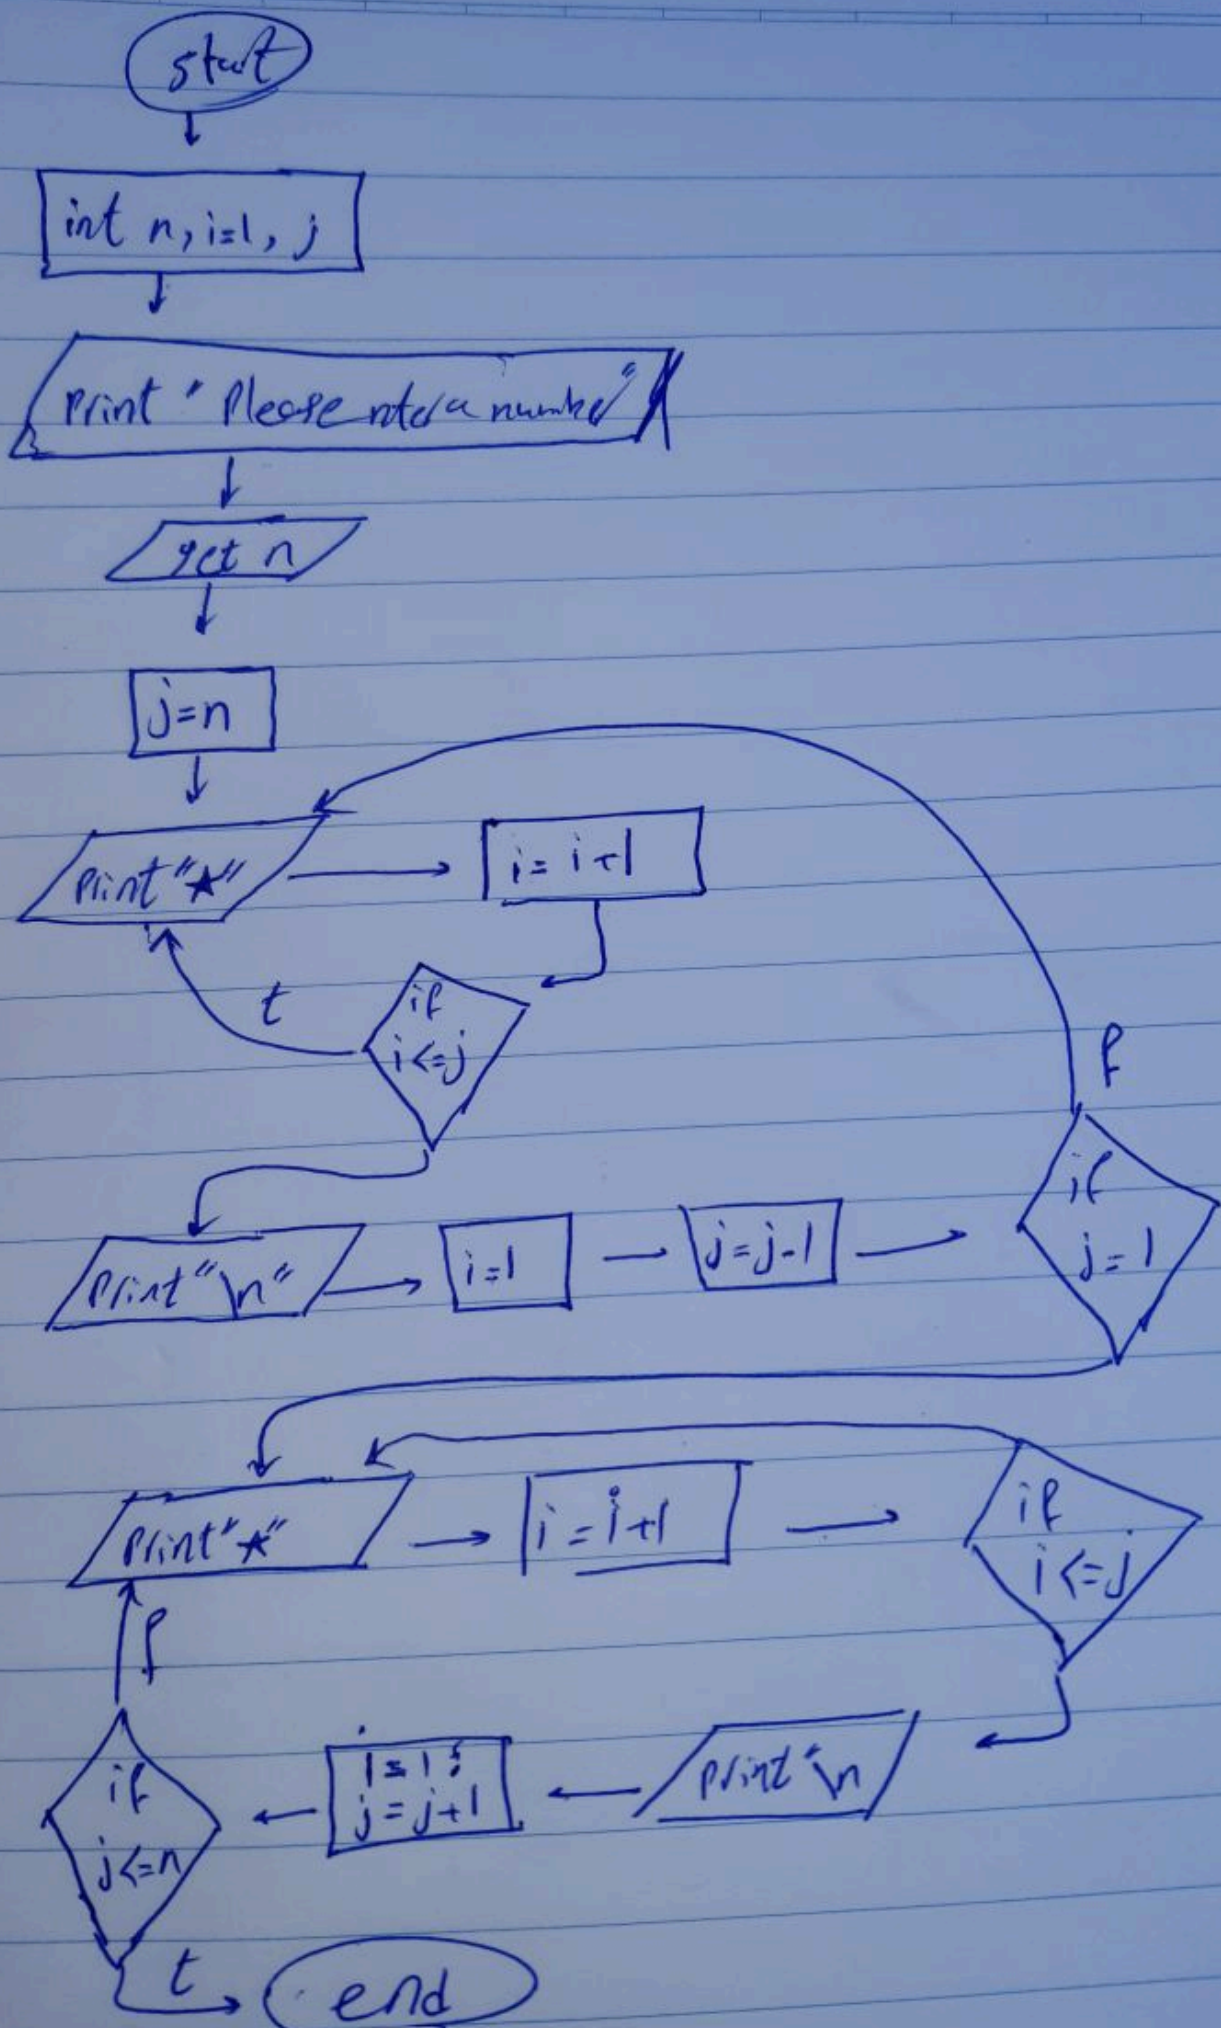 start
int n, i=1, j
print "Please enter a number"
get n
j=n
print "*"
i = i+1
if
i<=j
t
print "\n"
i=1
j=j-1
if
j=1
f
print "*"
i = i+1
if
i<=j
print "\n
i=1;
j=j+1
if
j<=n
f
t
end